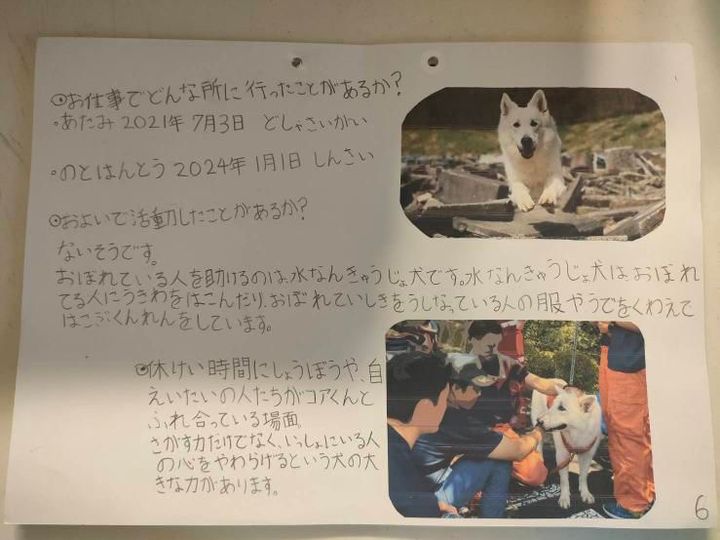 ⊙お仕事でどんな所に行ったことがあるか?
・あたみ 2021年 7月3日 どしゃさいがい
・のとはんとう 2024年 1月1日 しんさい
⊙およいで活動したことがあるか?
ないそうです。
おぼれている人を助けるのは、水なんきゅうじょ犬です。水なんきゅうじょ犬は、おぼれ
てる人にうきわをはこんだり、おぼれていしきをうしなっている人の服やうでをくわえて
はこぶくんれんをしています。
⊙休けい時間にしょうぼうや、自
えいたいの人たちがコアくんと
ふれ合っている場面。
さがす力だけでなく、いっしょにいる人
の心をやわらげるという犬の大
きな力があります。
6